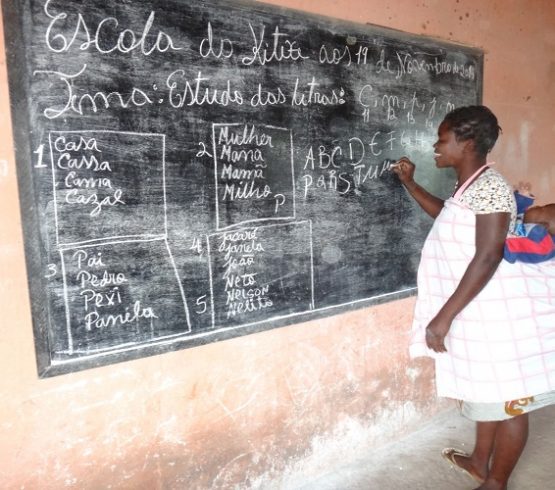 Escola do Kitexi aos 19 de Novembro de 20
Tema: Estudo das letras: C, m, p, j, n
11 12 13
1
Casa
Cassa
Cama
Cazal
2
Mulher
Mamã
Mamã
Milho
P
ABCDEFGH
PQRSTUV
3
Pai
Pedro
Pexi
Panela
4
Jacaré
Janela
João
5
Neto
Nelson
Nelito